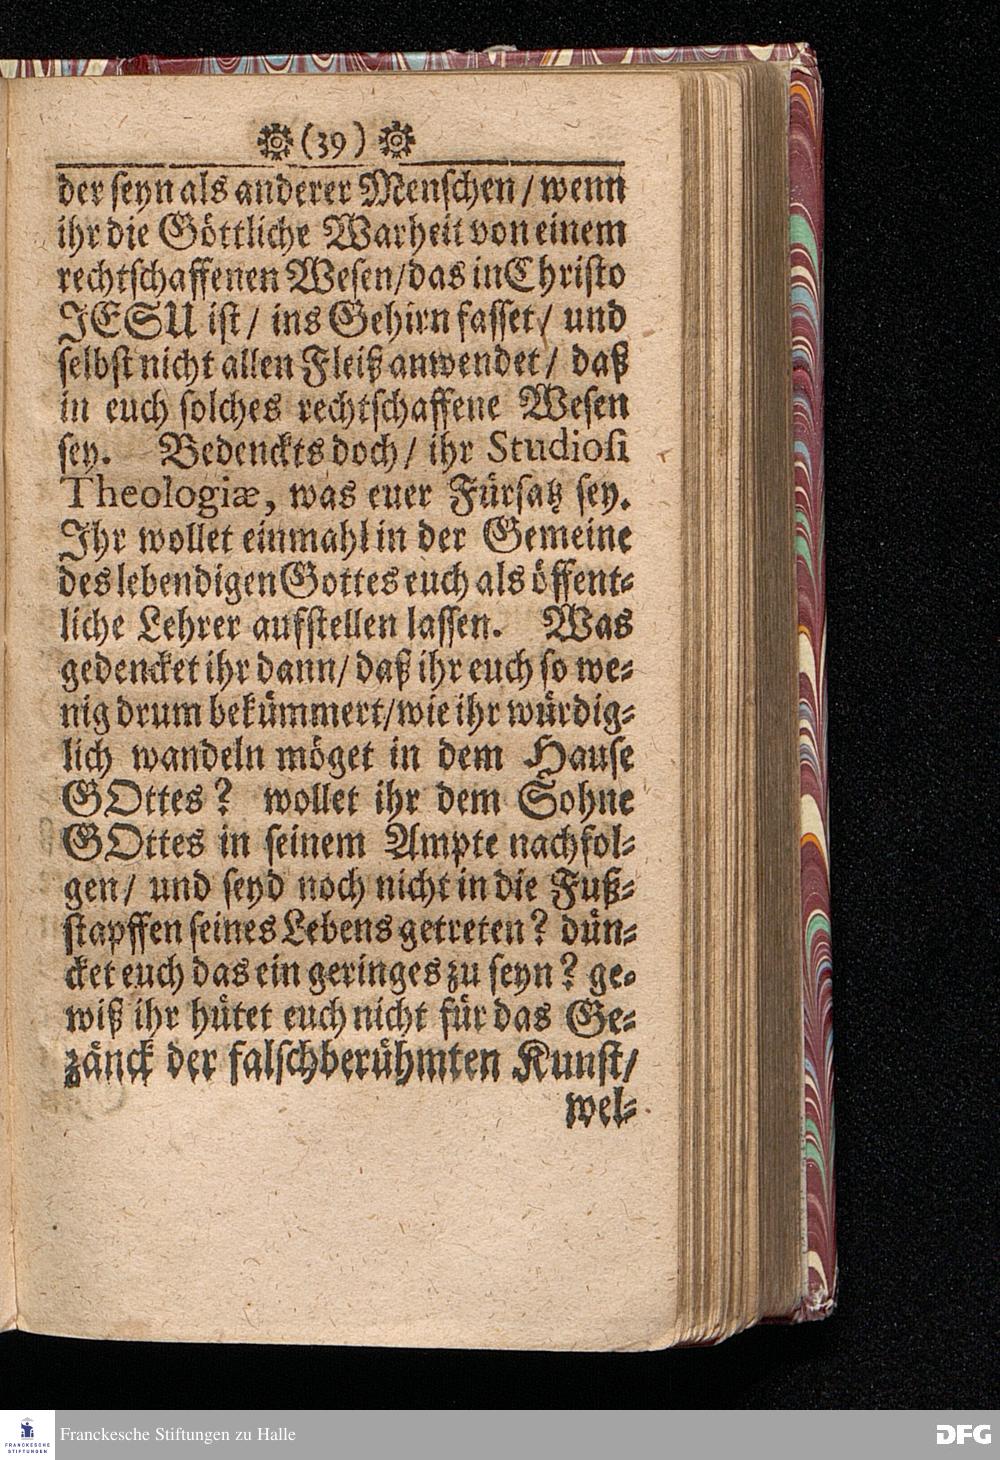 (39)
der seyn als anderer Menschen/ wenn
ihr die Göttliche Warheit von einem
rechtschaffenen Wesen/ das in Christo
JESU ist/ ins Gehirn fasset/ und
selbst nicht allen Fleiß anwendet/ daß
in euch solches rechtschaffene Wesen
sey. Bedenckts doch/ ihr Studiosi
Theologiæ, was euer Fürsatz sey.
Ihr wollet einmahl in der Gemeine
des lebendigen Gottes euch als öffent-
liche Lehrer aufstellen lassen. Was
gedencket ihr dann/ daß ihr euch so we-
nig drum bekümmert/ wie ihr würdig-
lich wandeln möget in dem Hause
GOttes? wollet ihr dem Sohne
GOttes in seinem Ampte nachfol-
gen/ und seyd noch nicht in die Fuß-
stapffen seines Lebens getreten? dün-
cket euch das ein geringes zu seyn? ge-
wiß ihr hütet euch nicht für das Ge-
zänck der falschberühmten Kunst/
wel-
FRANCKESCHE
STIFTUNGEN
Franckesche Stiftungen zu Halle
DFG